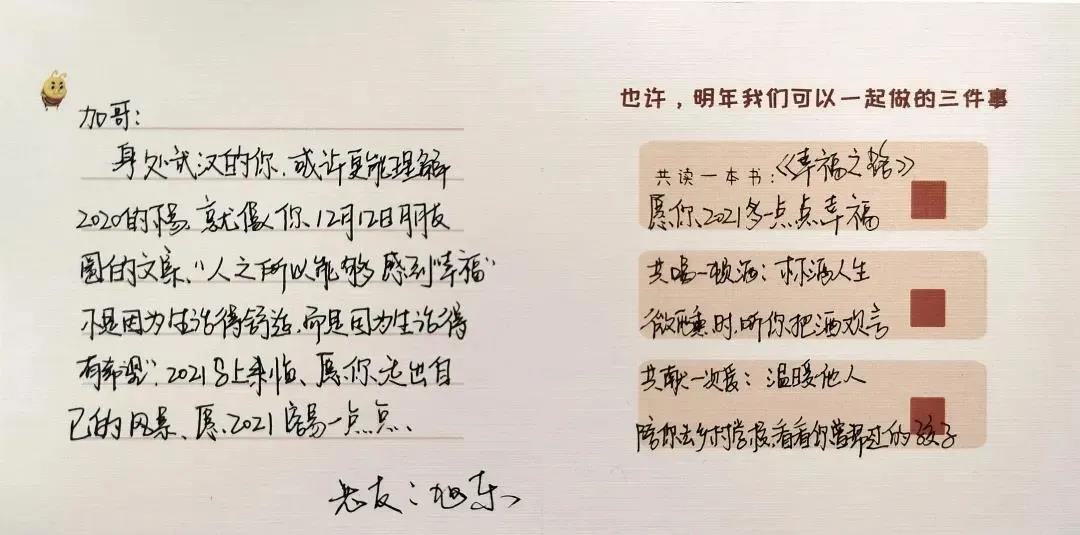 加哥：
身处武汉的你，或许更能理解
2020的殇，就像你12月12日朋友
圈的文案，“人之所以能够感到“幸福”
不是因为生活得舒适，而是因为生活得
有希望”，2021马上来临、愿你走出自
己的风景、愿2021容易一点点、
老友：旭东
也许，明年我们可以一起做的三件事
共读一本书：《幸福之路》
愿你2021多一点点幸福
共喝一顿酒：杯酒人生
微醺时，听你把酒欢言
共献一次爱：温暖他人
陪你去乡村学校，看看你曾帮过的孩子